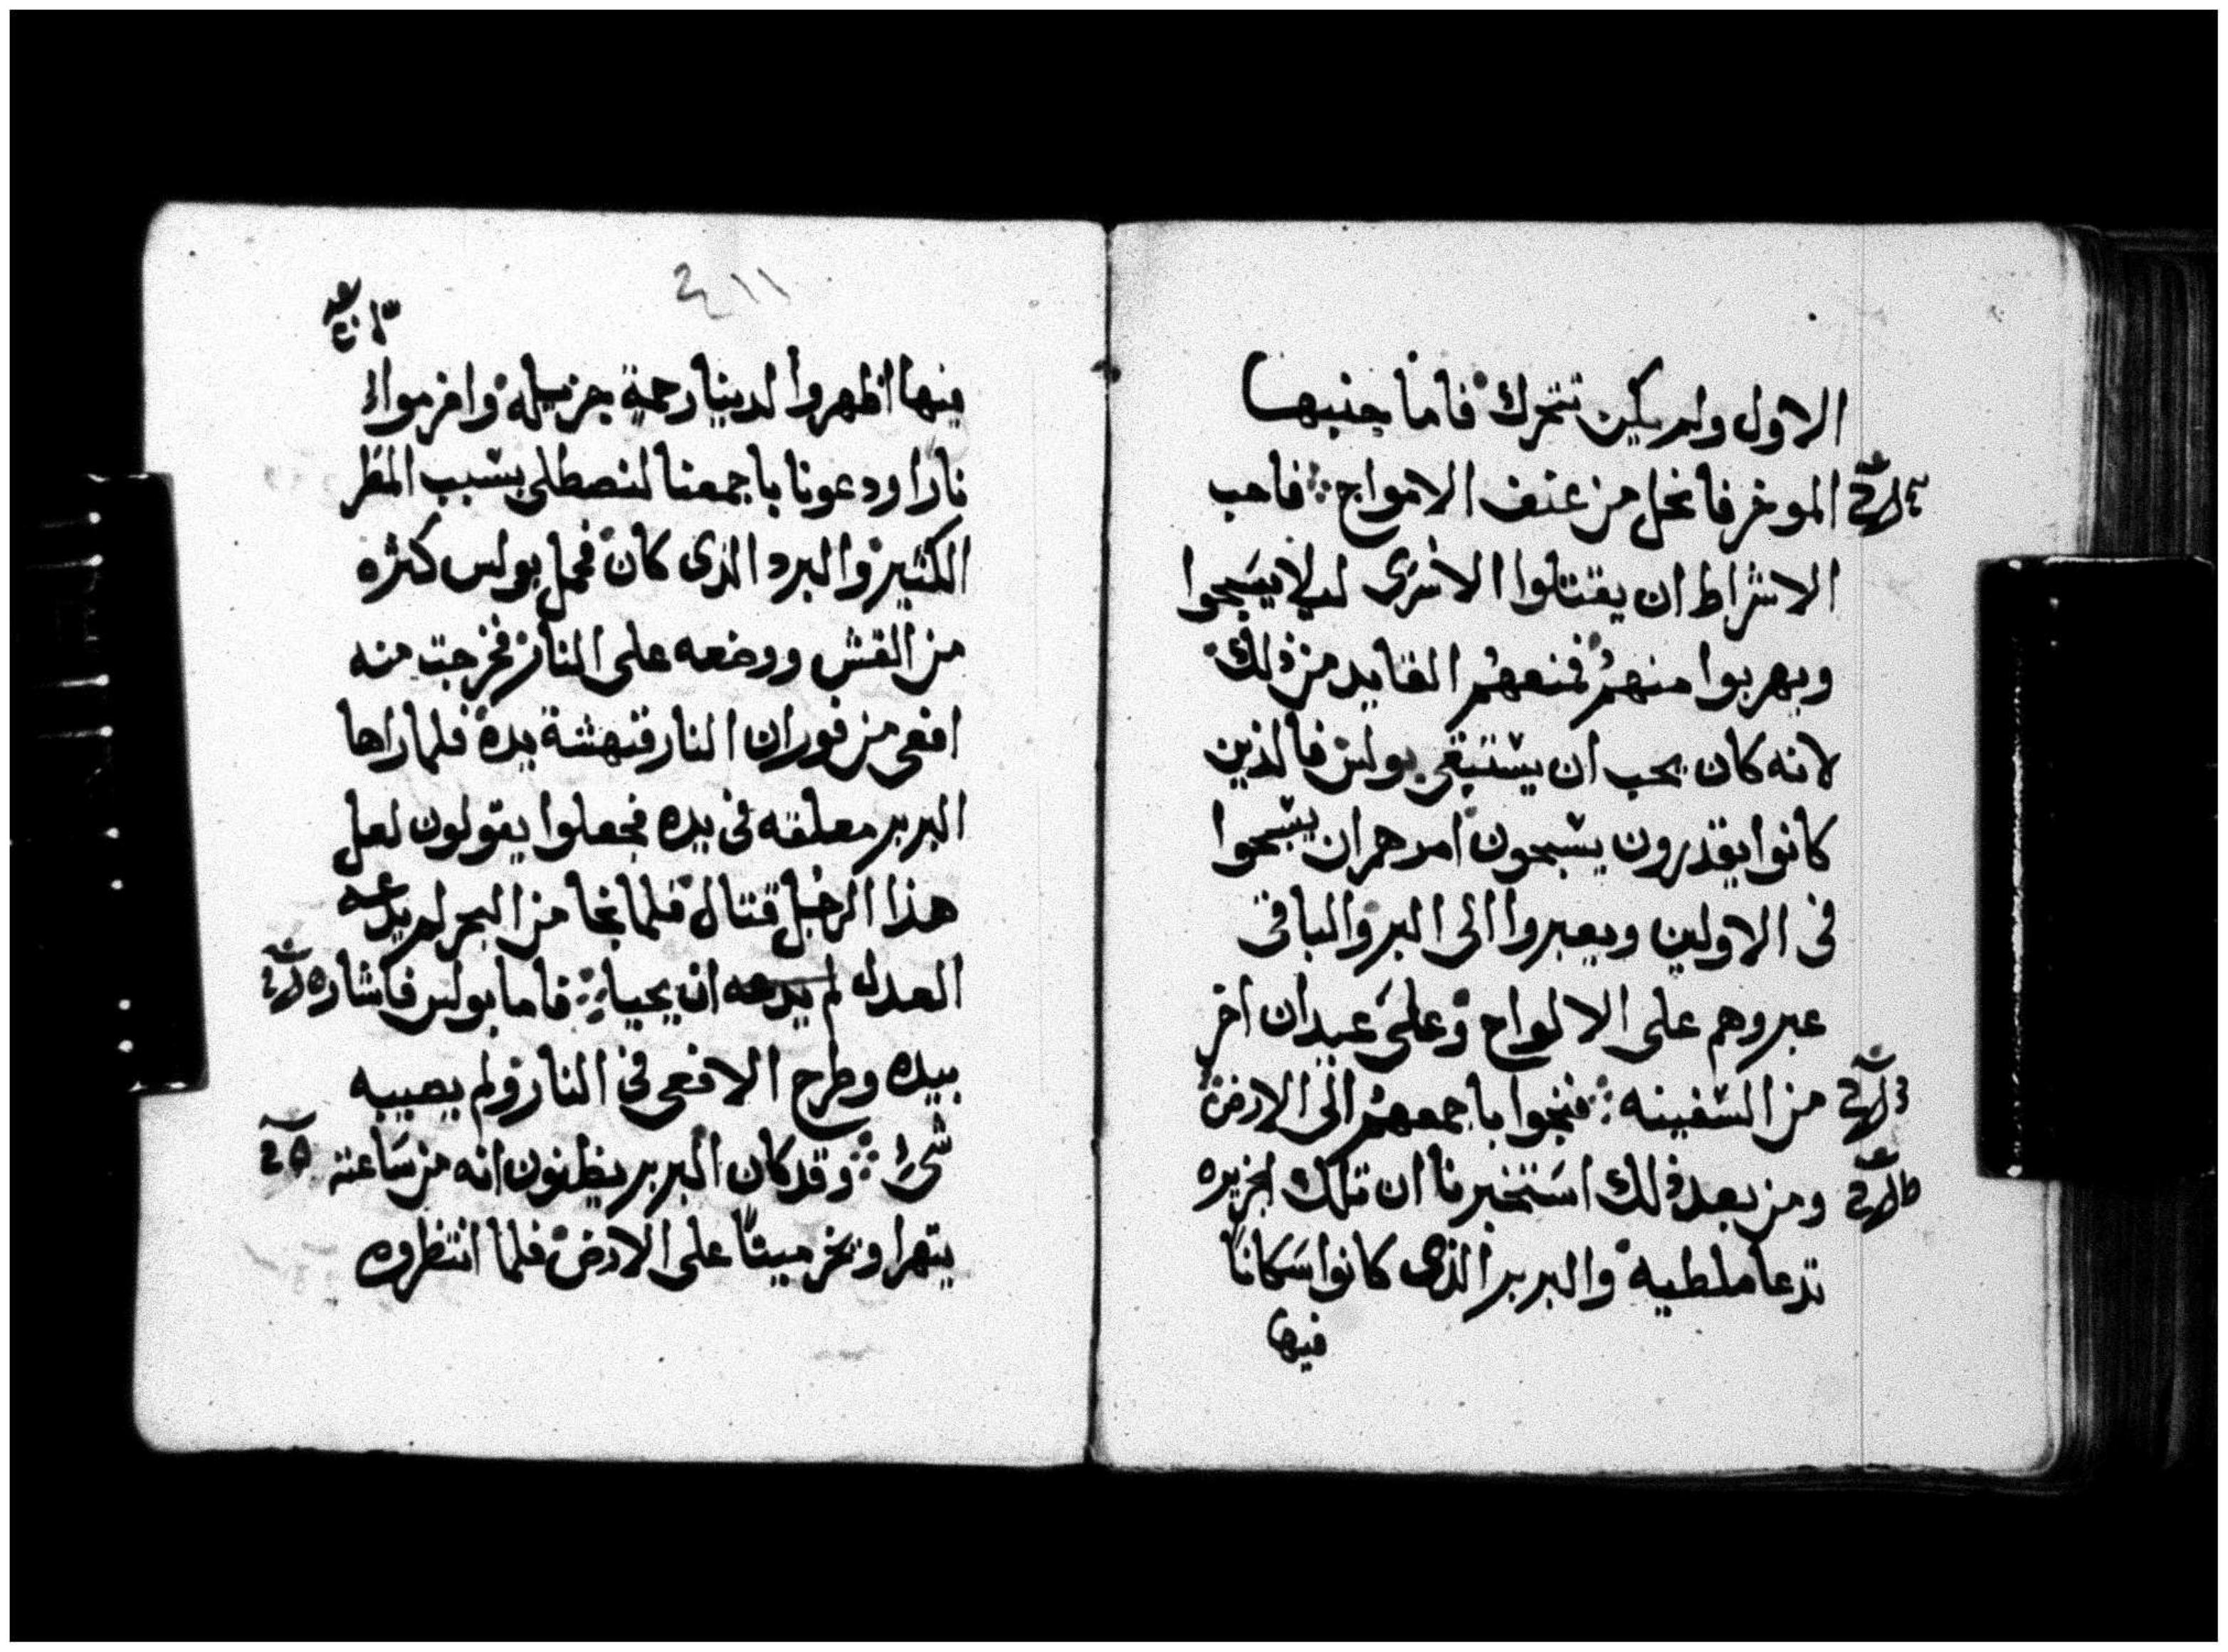 الاول ولم يكن تتحرك فاما جنبها
الموخر فانحل من عنف الامواج ⁘ فاحب
الاشراط ان يقتلوا الاسرى ليلا يسبحوا
ويهربوا منهم فمنعهم القايد من ذلك
لانه كان يحب ان يستبقى بولس فالذين
كانوا يقدرون يسبحون امرهم ان يسبحوا
فى الاولين ويعبروا الى البر والباقى
عبروهم على الالواح وعلى عيدان اخر
من السفينه ⁘ فنجوا باجمعهم الى الارض
ومن بعد ذلك استخبرنا ان تلك الجزيره
تدعا ملطيه والبربر الذى كانوا سكانا
فيها
٢١١
فيها اظهروا لدينا رحمة جزيله واضرموا
نارا ودعونا باجمعنا لنصطلى بسبب المطر
الكثير والبرد الذى كان فحمل بولس كثره
من القش ووضعه على النار فخرجت منه
افعى من فوران النار فنهشة يده فلما راها
البربر معلقه فى يده فجعلوا يقولون لعل
هذا الرجل قتال فلما نجا من البحر لم يدعه
العدل لم يدعه ان يحيا ⁘ فاما بولس فاشار
بيده وطرح الافعى فى النار ولم يصيبه
شىء ⁘ وقد كان البربر يظنون انه من ساعته
يتهرا ويخر ميتا على الارض فلما انتظروه